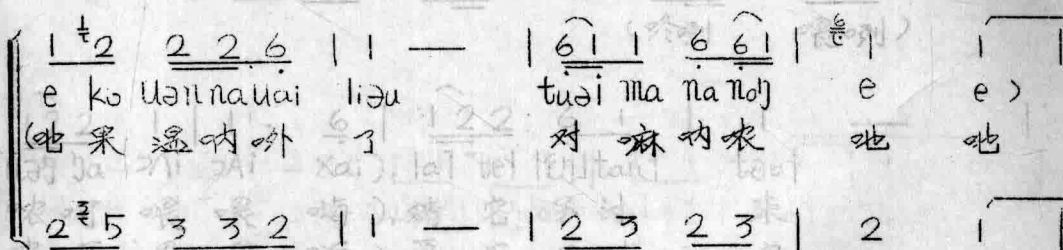 1 2 2 2 6 | 1 — | 6 1 1 6 6 1 | 1 1 |
e ko uən na uai liəu tuəi ma na noŋ e e )
(吔 果 温 呐 外 了 对 嘛 呐 哝 吔 吔
2 5 3 3 2 | 1 — | 2 3 2 3 | 2 1 |